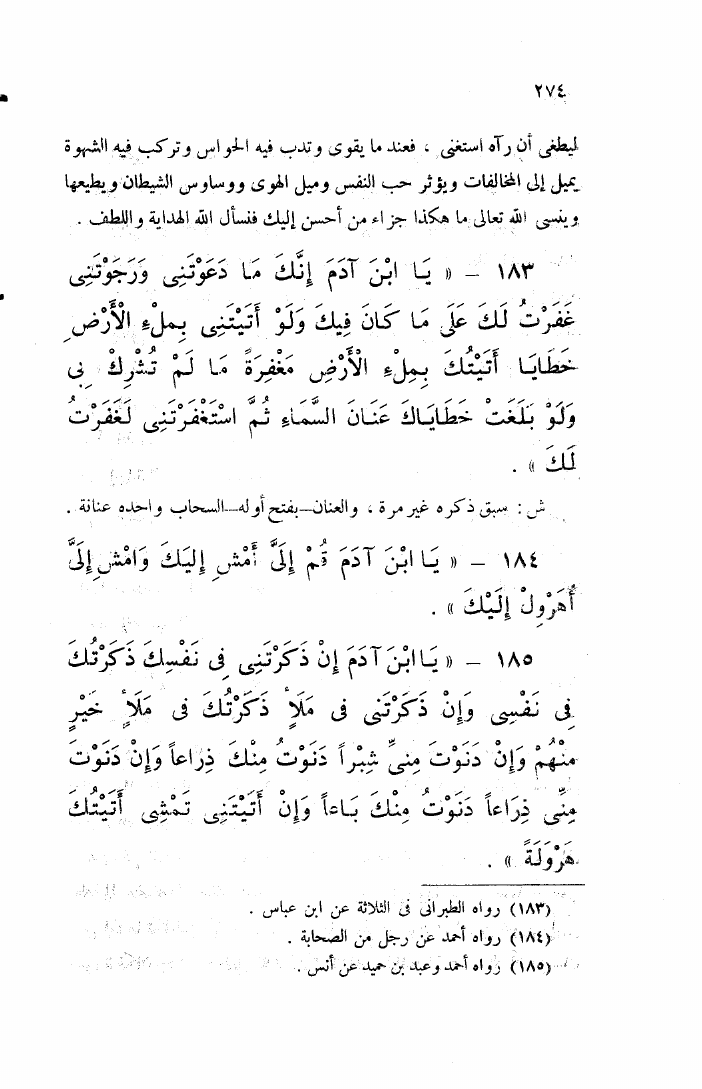 ٢٧٤
ليطغى أن رآه استغنى ، فعند ما يقوى وتدب فيه الحواس وتركب فيه الشهوة
يميل إلى المخالفات ويؤثر حب النفس وميل الهوى ووساوس الشيطان ويطيعها
وينسى الله تعالى ما هكذا جزاء من أحسن إليك فنسأل الله الهداية واللطف .
١٨٣ – « يَا ابْنَ آدَمَ إِنَّكَ مَا دَعَوْتَنِى وَرَجَوْتَنِى
غَفَرْتُ لَكَ عَلَى مَا كَانَ فِيكَ وَلَوْ أَتَيْتَنِى بِمِلْءِ الْأَرْضِ
خَطَايَا أَتَيْتُكَ بِمِلْءِ الْأَرْضِ مَغْفِرَةً مَا لَمْ تُشْرِكْ بِى
وَلَوْ بَلَغَتْ خَطَايَاكَ عَنَانَ السَّمَاءِ ثُمَّ اسْتَغْفَرْتَنِى لَغَفَرْتُ
لَكَ » .
ش : سبق ذكره غير مرة ، والعنان–بفتح أوله–السحاب واحده عنانة .
١٨٤ – « يَا ابْنَ آدَمَ قُمْ إِلَىَّ أَمْشِ إِلَيْكَ وَامْشِ إِلَىَّ
أُهَرْوِلْ إِلَيْكَ » .
١٨٥ – « يَا ابْنَ آدَمَ إِنْ ذَكَرْتَنِى فِى نَفْسِكَ ذَكَرْتُكَ
فِى نَفْسِى وَإِنْ ذَكَرْتَنِى فِى مَلَأٍ ذَكَرْتُكَ فِى مَلَأٍ خَيْرٍ
مِنْهُمْ وَإِنْ دَنَوْتَ مِنِّى شِبْراً دَنَوْتُ مِنْكَ ذِرَاعاً وَإِنْ دَنَوْتَ
مِنِّى ذِرَاعاً دَنَوْتُ مِنْكَ بَاعاً وَإِنْ أَتَيْتَنِى تَمْشِى أَتَيْتُكَ
هَرْوَلَةً » .
(١٨٣) رواه الطبرانى فى الثلاثة عن ابن عباس .
(١٨٤) رواه أحمد عن رجل من الصحابة .
(١٨٥) رواه أحمد وعبد بن حميد عن أنس .